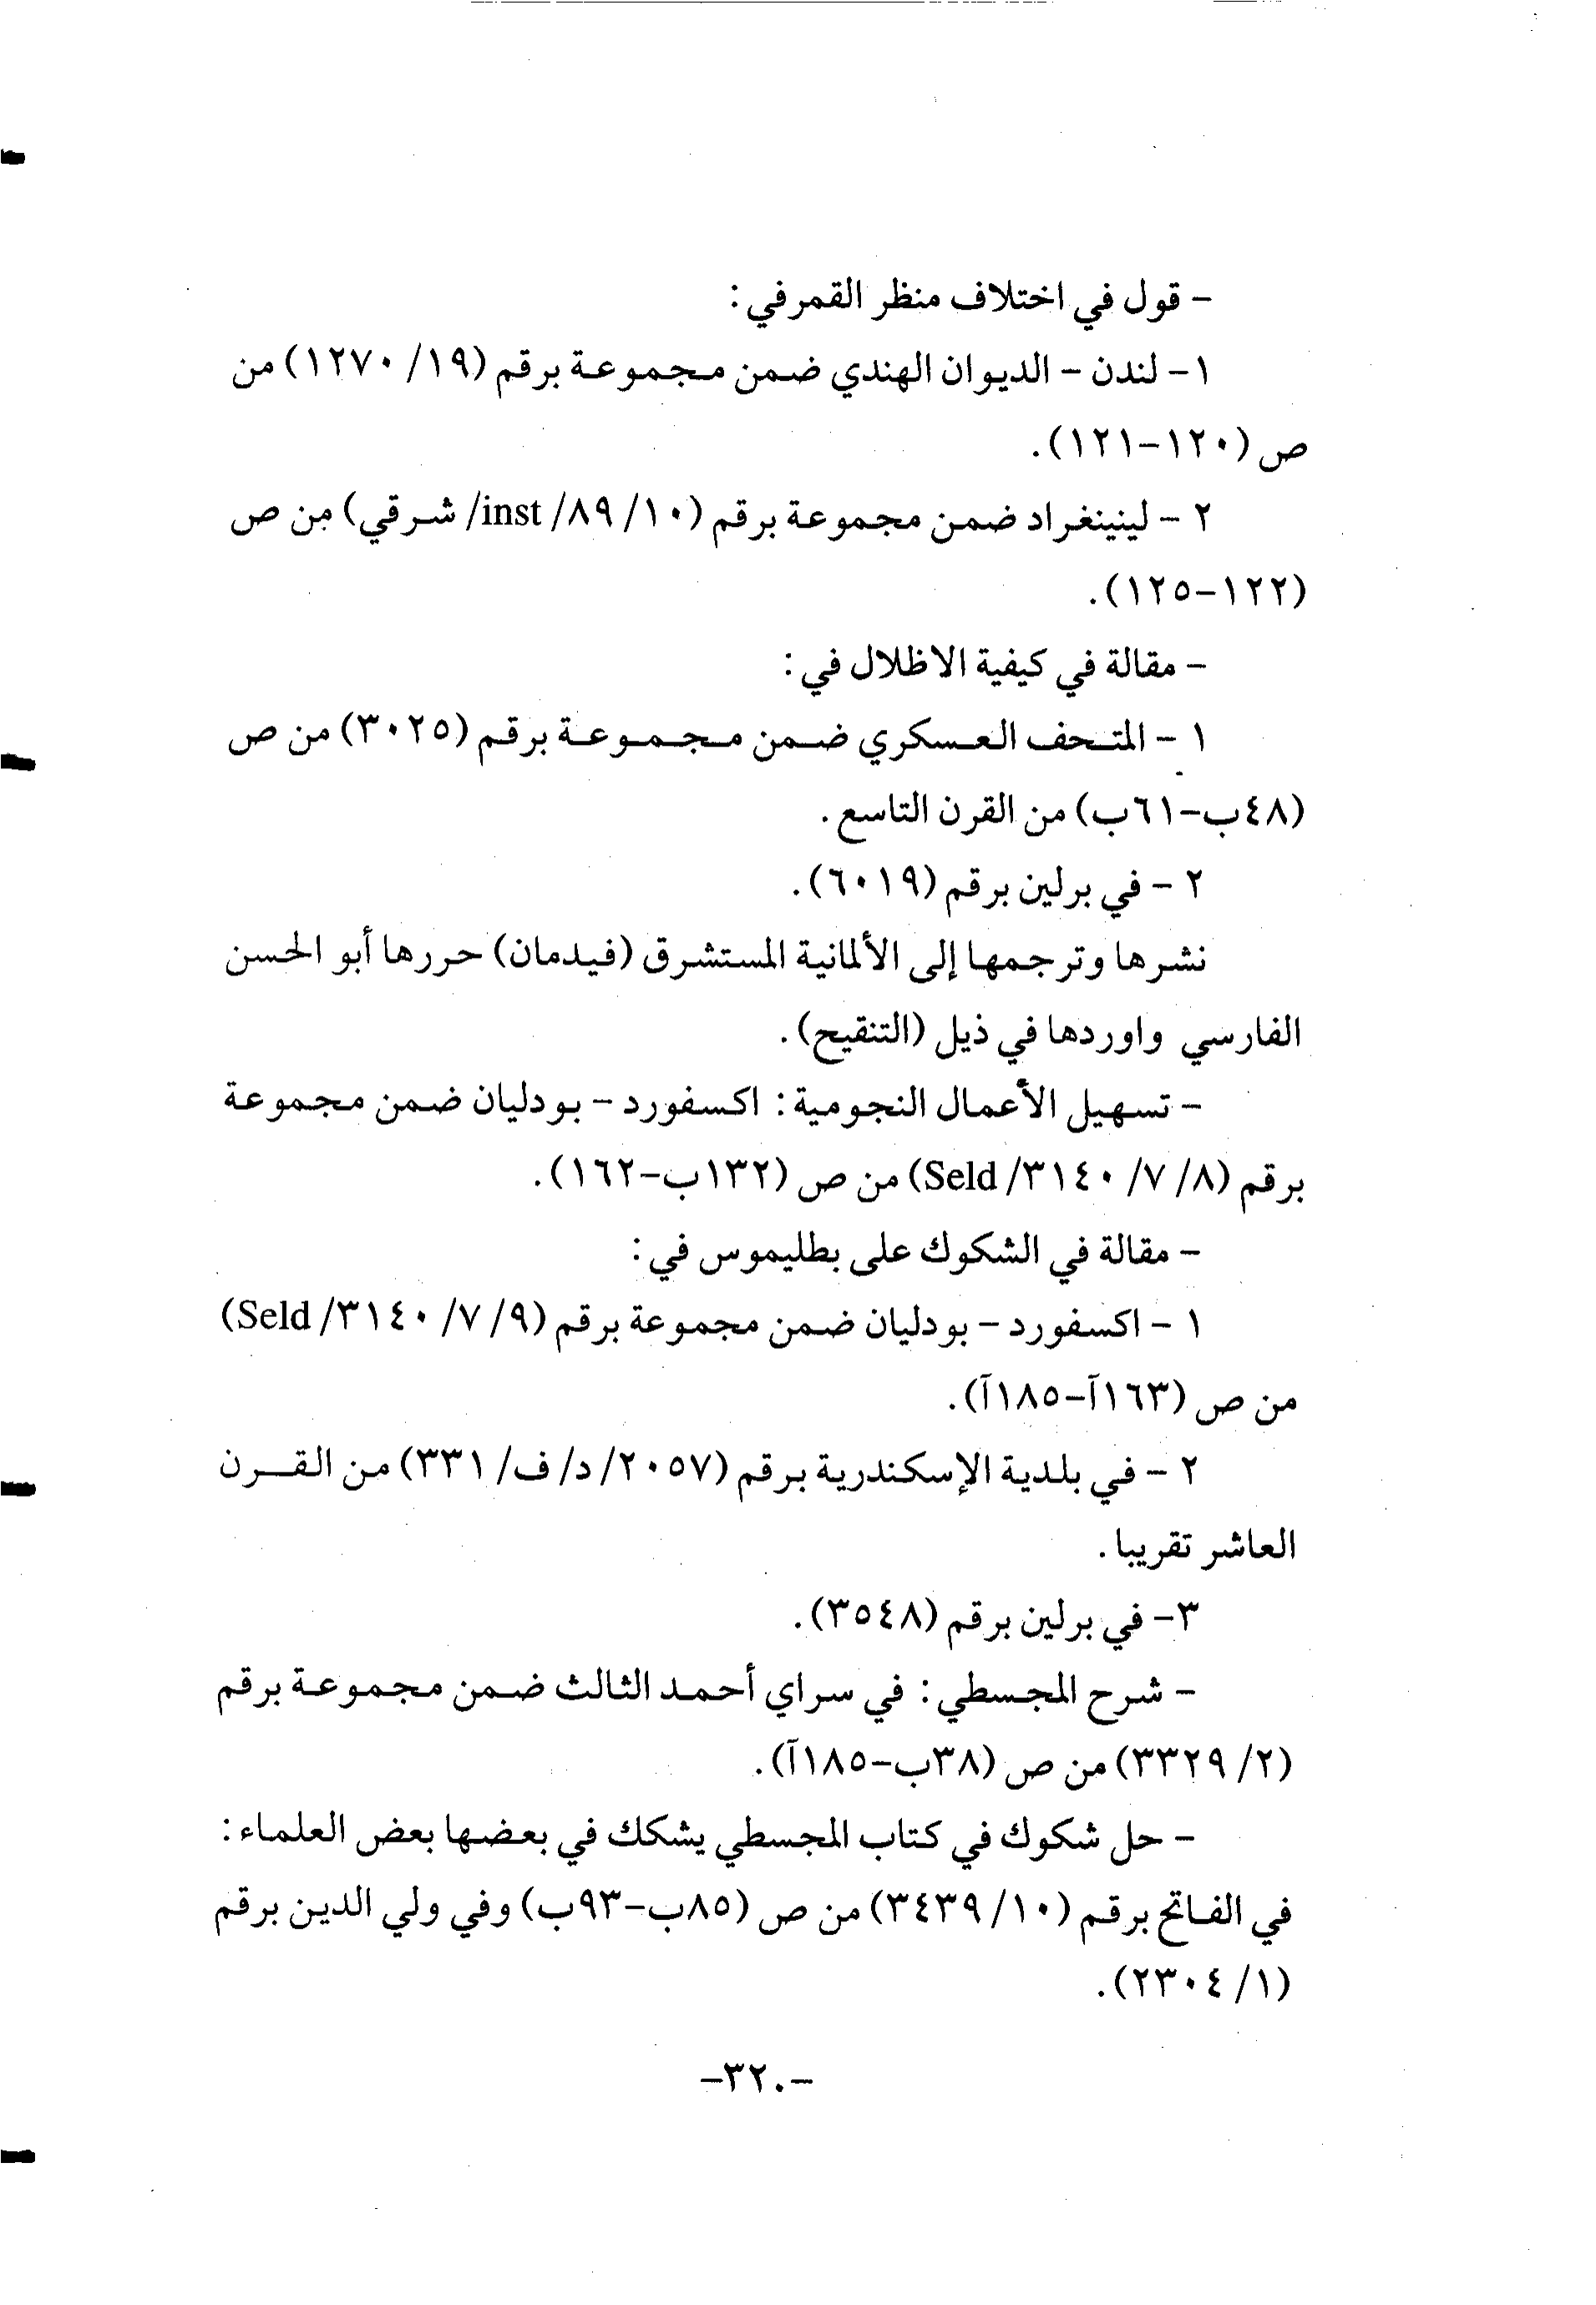 - قول في اختلاف منظر القمرفي:
١- لندن - الديوان الهندي ضمن مجموعة برقم (١٩/ ١٢٧٠) من
ص (١٢٠-١٢١).
٢ - لينينغراد ضمن مجموعة برقم (١٠/ ٨٩/ inst/ شرقي) من ص
(١٢٢-١٢٥).
- مقالة في كيفية الاظلال في:
١ - المتحف العسكري ضمن مجموعة برقم (٣٠٢٥) من ص
(٤٨ب-٦١ب) من القرن التاسع.
٢ - في برلين برقم (٦٠١٩).
نشرها وترجمها إلى الألمانية المستشرق (فيدمان) حررها أبو الحسن
الفارسي واوردها في ذيل (التنقيح).
- تسهيل الأعمال النجومية: اكسفورد - بودليان ضمن مجموعة
برقم (٨/ ٧/ ٣١٤٠/ Seld) من ص (١٣٢ب-١٦٢).
- مقالة في الشكوك على بطليموس في:
١ - اكسفورد - بودليان ضمن مجموعة برقم (٩/ ٧/ ٣١٤٠/ Seld)
من ص (١٦٣آ-١٨٥آ).
٢ - في بلدية الإسكندرية برقم (٢٠٥٧/ د/ ف/ ٣٣١) من القرن
العاشر تقريبا.
٣- في برلين برقم (٣٥٤٨).
- شرح المجسطي: في سراي أحمد الثالث ضمن مجموعة برقم
(٢/ ٣٣٢٩) من ص (٣٨ب-١٨٥آ).
- حل شكوك في كتاب المجسطي يشكك في بعضها بعض العلماء:
في الفاتح برقم (١٠/ ٣٤٣٩) من ص (٨٥ب-٩٣ب) وفي ولي الدين برقم
(١/ ٢٣٠٤).
-٣٢٠-